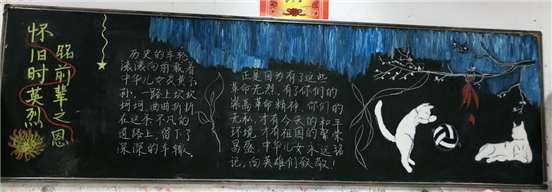 怀旧时英烈
铭前辈之恩
历史的车轮
滚滚向前载着
中华儿女炎黄子
孙,一路上坎坎
坷坷曲曲折折
在这个不凡的
道路上,留下了
深深的车辙.
正是因为有了这些
革命先烈,有了你们的
崇高革命精神,你们的
无私,才有今天的和平
环境,才有祖国的繁荣
昌盛,中华儿女永远铭
记,向英雄们致敬!